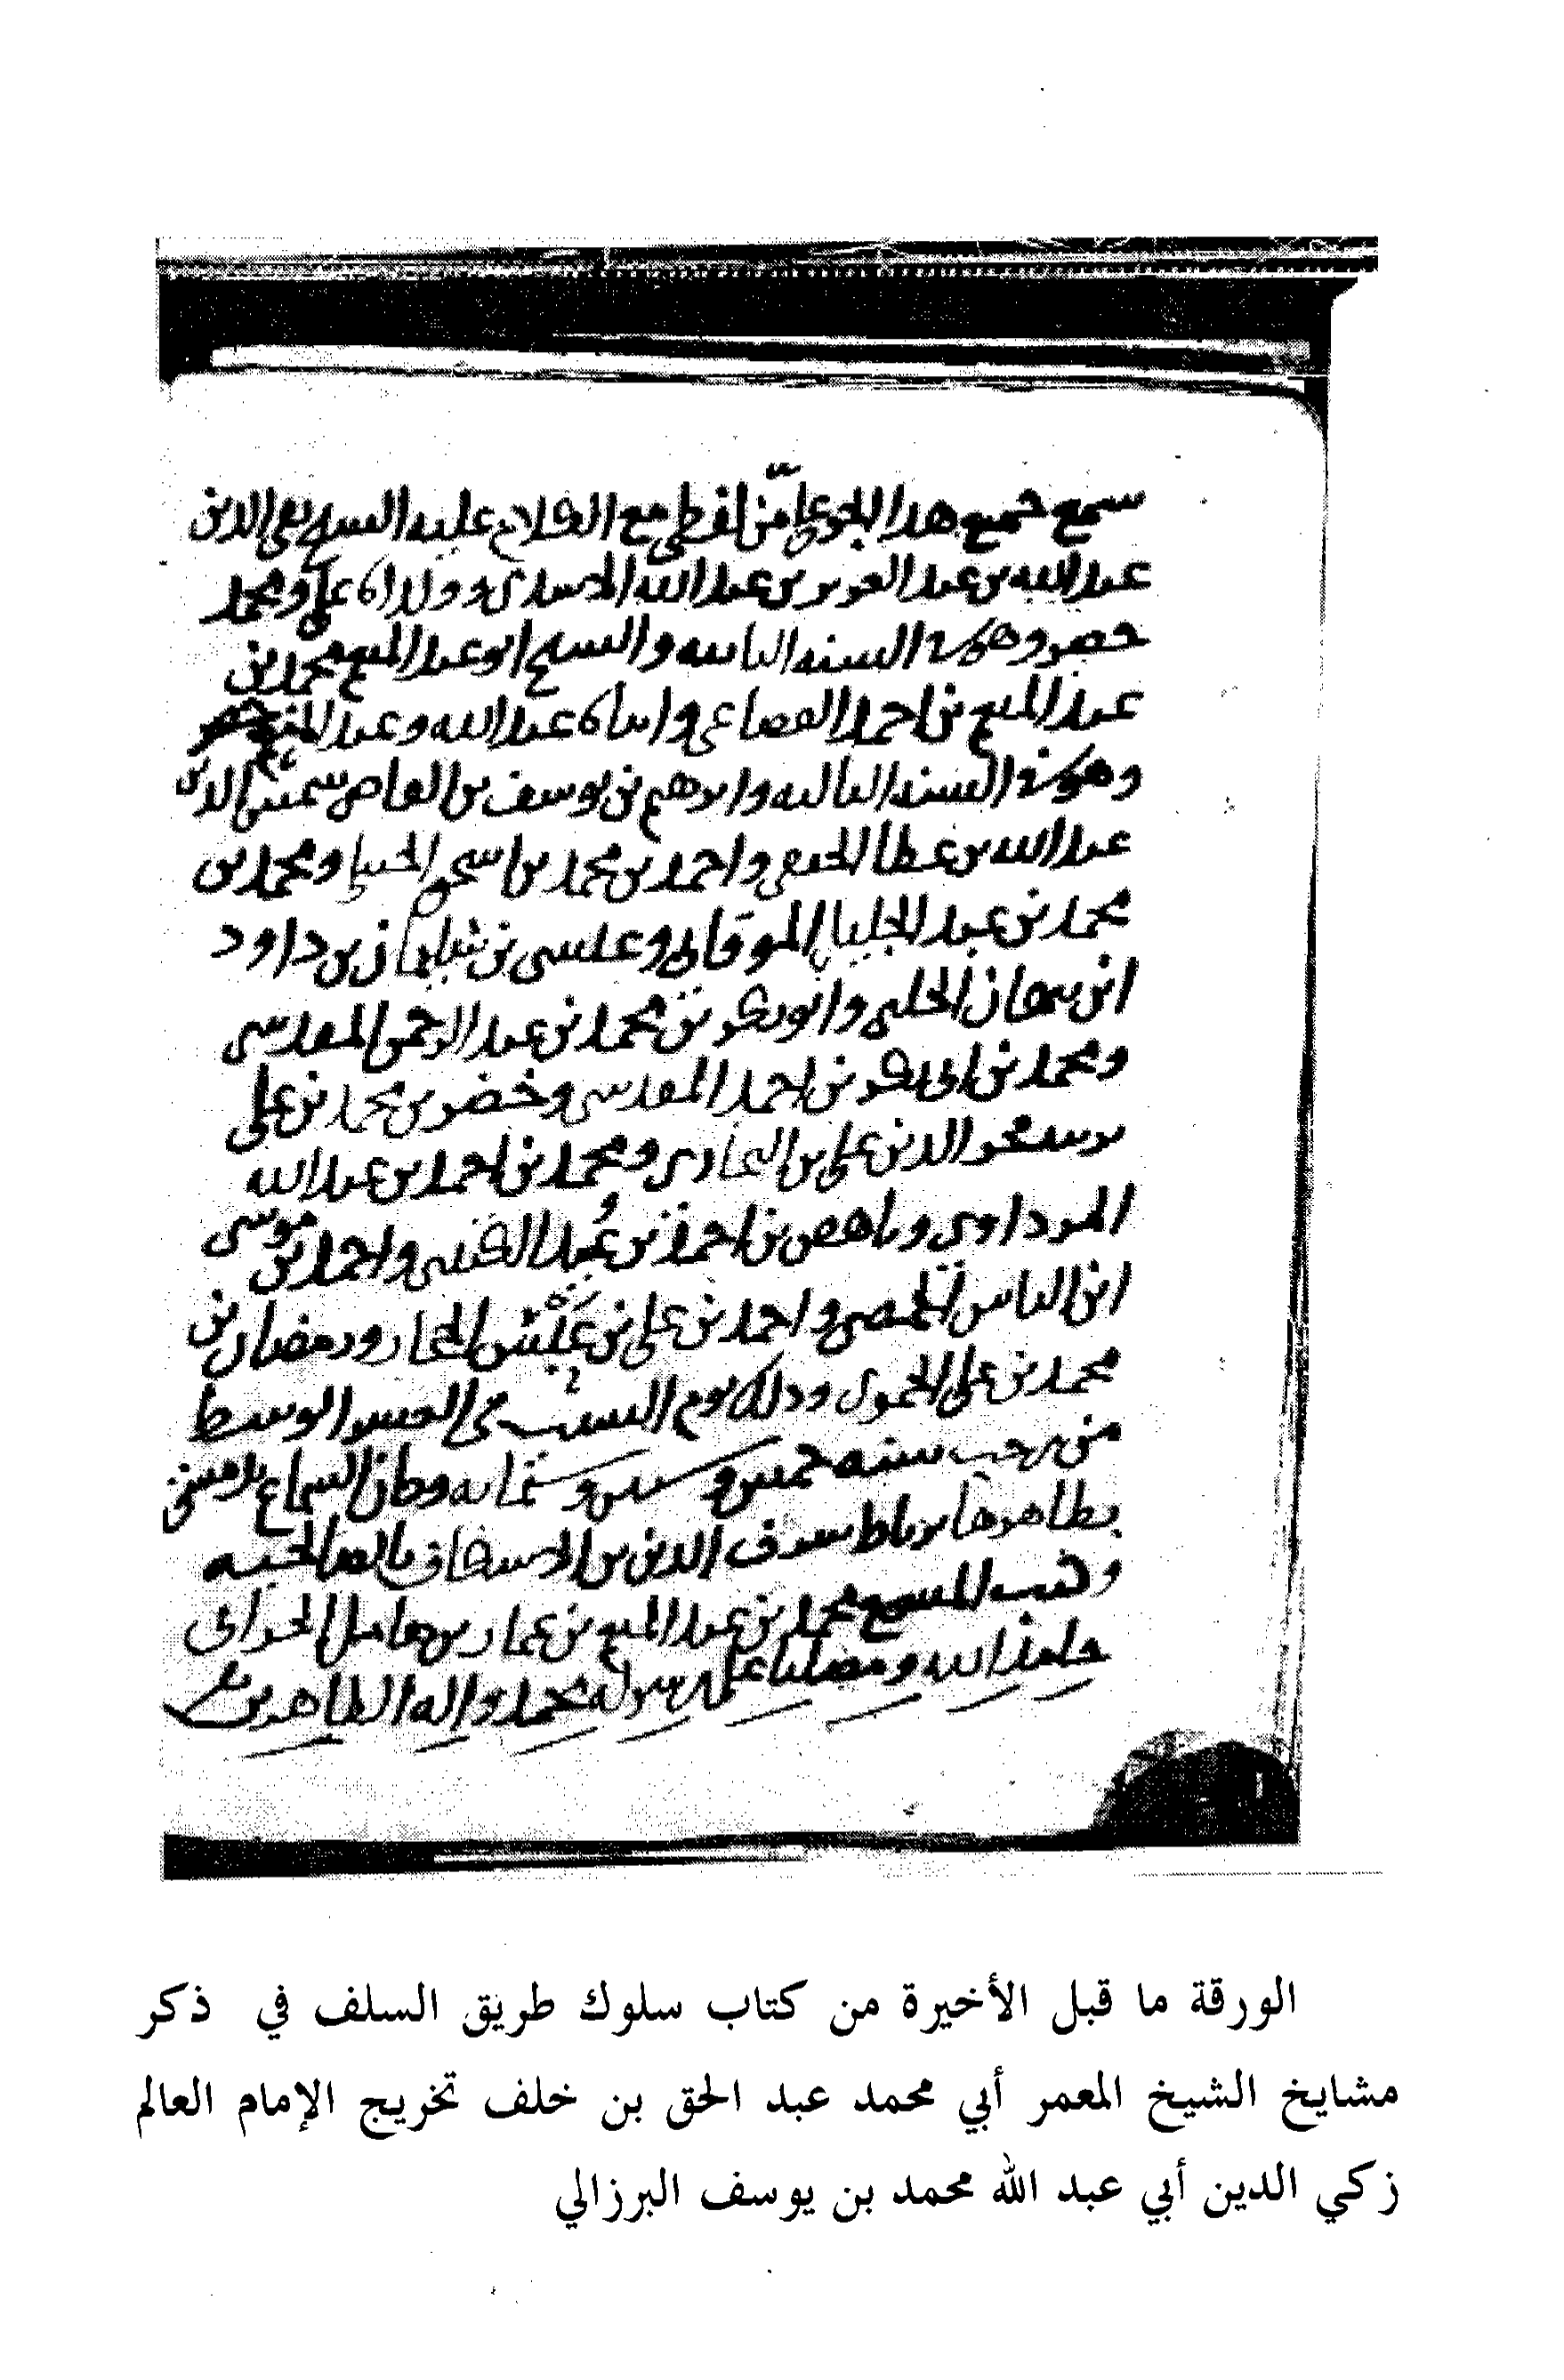 سمع جميع هذا الجزء علي من لفظي مع الكلام عليه الشيخ تقي الدين
عبد الله بن عبد العزيز بن عبد الله وولداه علي ومحمد
حضر وهو في السنة والشيخ ابو عبد المنعم محمد بن
عبد المنعم بن احمد وابناه عبد الله وعبد المنعم حضر
وهو في السنة الثالثة وابرهيم بن يوسف بن القاضي شمس الدين
عبد الله بن عطا الحنفي واحمد بن محمد بن اسحق ومحمد بن
محمد بن عبد الجليل الموقاني وعيسى بن سليمان بن داود
ابن الحلبي وابو بكر بن محمد بن عبد الرحمن المقدسي
ومحمد بن ابي بكر بن احمد المقدسي وخضر بن محمد بن علي
الدين علي بن البخاري ومحمد بن احمد بن عبد الله
المرداوي بن احمد بن عبيد واحمد بن موسى
ابن الياس واحمد بن علي بن ورمضان بن
محمد بن علي الحموي وذلك يوم السبت في العشر الوسط
من رجب سنة خمس وستين وستمايه وكان السماع بدمشق
بظاهرها برباط الدين بن بالصالحيه
وكتب المسمع محمد بن عبد المنعم بن عمار بن هامل الحراني
حامدا لله ومصليا على رسوله محمد واله الطاهرين
الورقة ما قبل الأخيرة من كتاب سلوك طريق السلف في ذكر
مشايخ الشيخ المعمر أبي محمد عبد الحق بن خلف تخريج الإمام العالم
زكي الدين أبي عبد الله محمد بن يوسف البرزالي